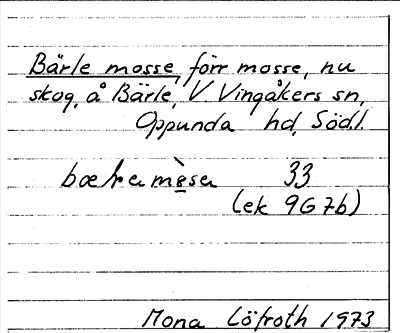 Bärle mosse, förr mosse, nu
skog, å Bärle, V Vingåkers sn,
Oppunda hd, Södl.
33
(ek 9G 7b)
Mona Löfroth 1973